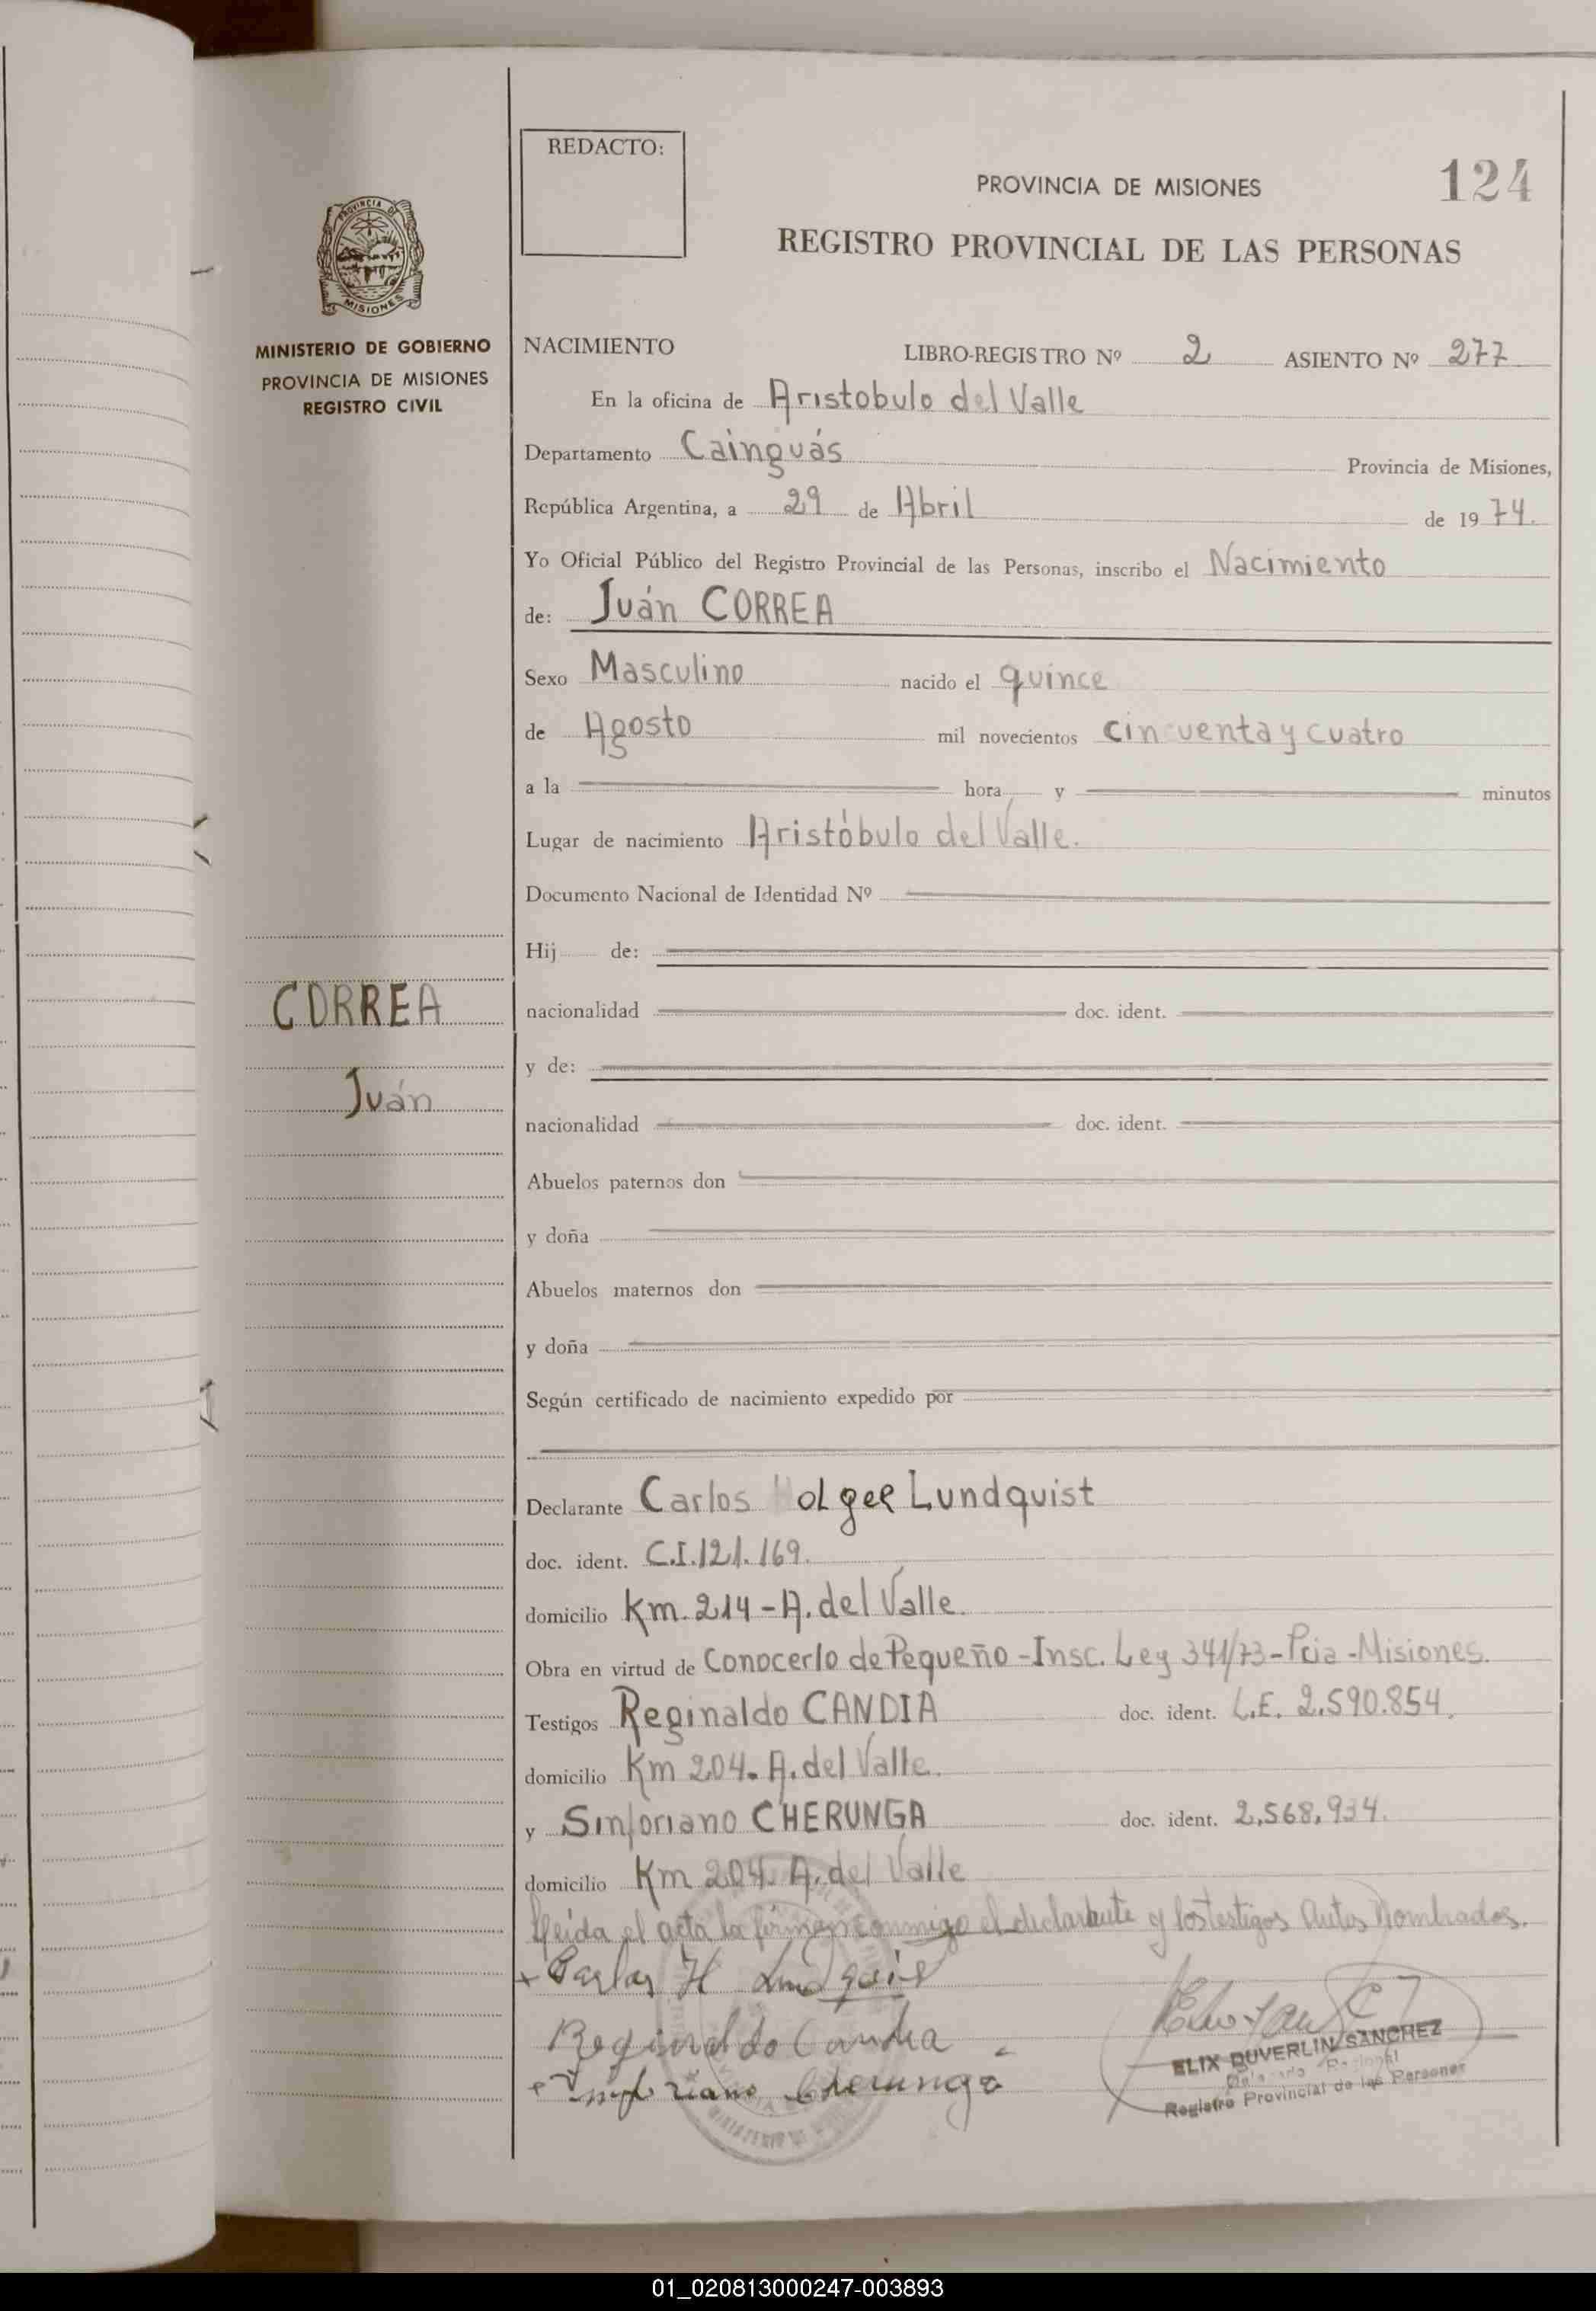 REDACTO:
PROVINCIA DE MISIONES
124
REGISTRO PROVINCIAL DE LAS PERSONAS
PROVINCIA DE
MISIONES
MINISTERIO DE GOBIERNO
PROVINCIA DE MISIONES
REGISTRO CIVIL
CORREA
Juán
NACIMIENTO LIBRO-REGISTRO Nº 2 ASIENTO Nº 277
En la oficina de Aristobulo del Valle
Departamento Cainguás Provincia de Misiones,
República Argentina, a 29 de Abril de 1974.
Yo Oficial Público del Registro Provincial de las Personas, inscribo el Nacimiento
de: Juán CORREA
Sexo Masculino nacido el quince
de Agosto mil novecientos cincuenta y cuatro
a la hora y minutos
Lugar de nacimiento Aristóbulo del Valle.
Documento Nacional de Identidad Nº
Hij de:
nacionalidad doc. ident.
y de:
nacionalidad doc. ident.
Abuelos paternos don
y doña
Abuelos maternos don
y doña
Según certificado de nacimiento expedido por
Declarante Carlos Holger Lundquist
doc. ident. C.I. 121.169.
domicilio Km. 214 - A. del Valle.
Obra en virtud de Conocerlo de Pequeño - Insc. Ley 341/73 - Pcia - Misiones.
Testigos Reginaldo CANDIA doc. ident. L.E. 2.590.854.
domicilio Km 204. A. del Valle.
y Sinforiano CHERUNGA doc. ident. 2,568,934.
domicilio Km 204. A. del Valle
lleida el acta la firman conmigo el declarante y los testigos Antes Nombrados.
+ Carlos H
Reginaldo Candia
Cherunga
ELIX DUVERLIN SANCHEZ
Registro Provincial de las Personas
01_020813000247-003893